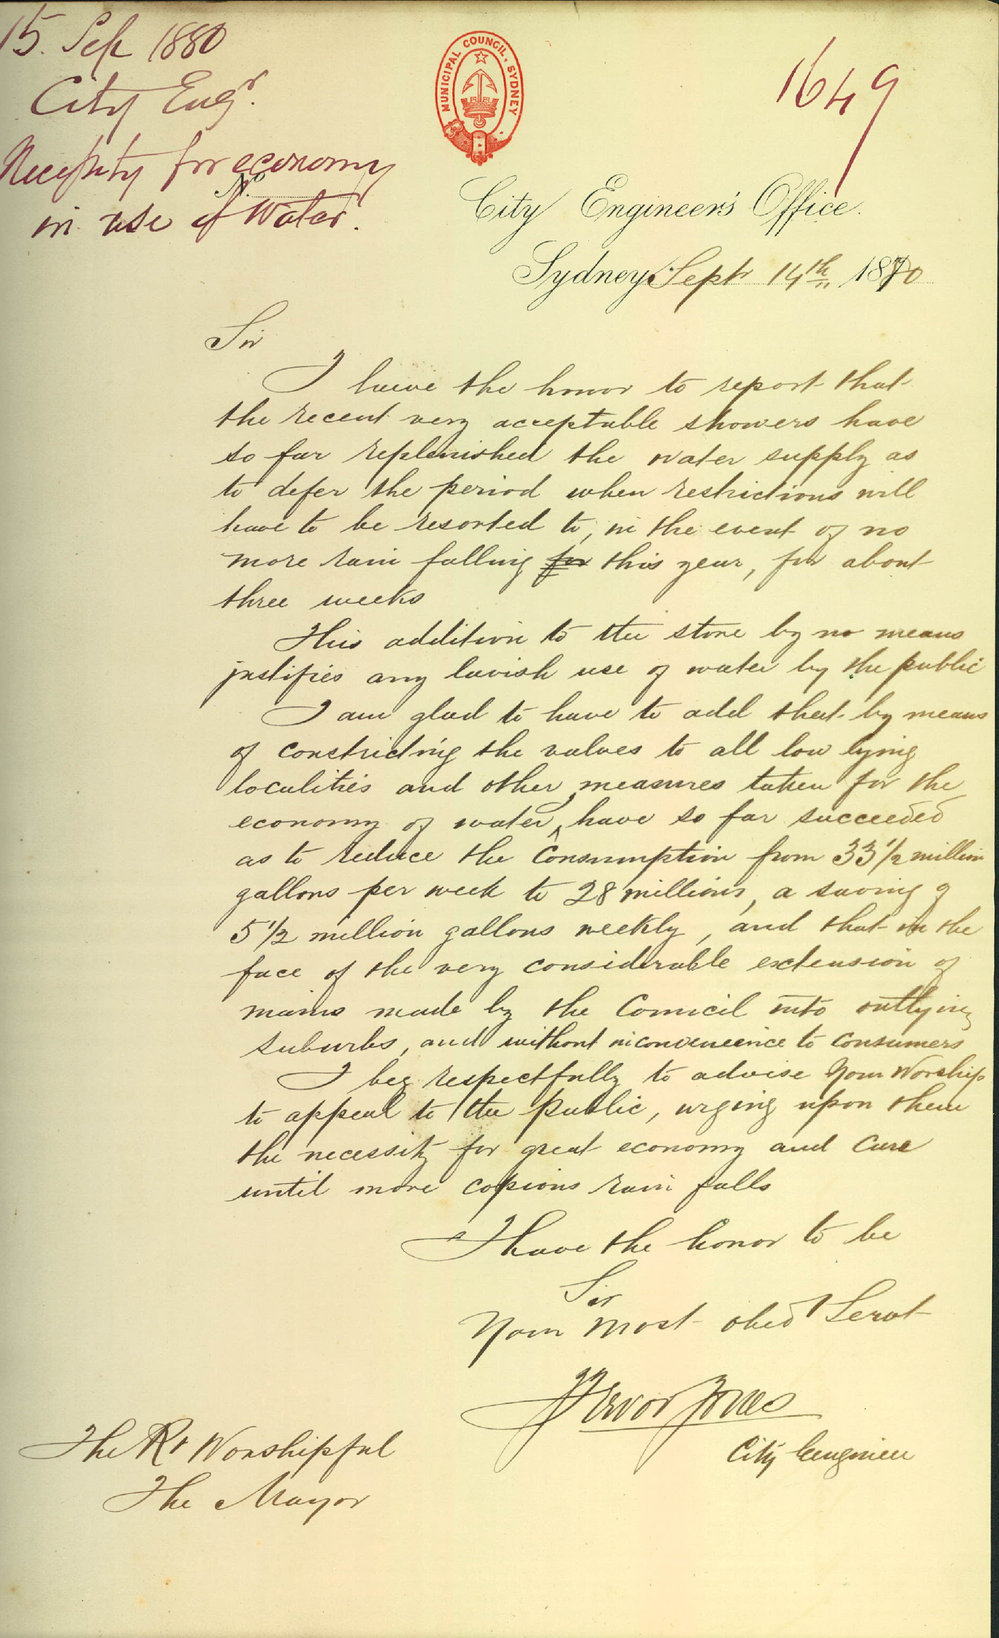 15. Sep 1880
City Engr.
Necessity for economy
in use of Water.
MUNICIPAL COUNCIL, SYDNEY
1649
No
City Engineer's Office.
Sydney Sept 14th 1880
Sir
I have the honor to report that
the recent very acceptable showers have
so far replenished the water supply as
to defer the period when restrictions will
have to be resorted to, in the event of no
more rain falling for this year, for about
three weeks
This addition to the store by no means
justifies any lavish use of water by the public
I am glad to have to add that by means
of constricting the valves to all low lying
localities and other measures taken for the
economy of water, have so far succeeded
as to reduce the Consumption from 33 1/2 million
gallons per week to 28 millions, a saving of
5 1/2 million gallons weekly, and that in the
face of the very considerable extension of
mains made by the Council into outlying
suburbs, and without inconvenience to Consumers
I beg respectfully to advise Your Worship
to appeal to the public, urging upon them
the necessity for great economy and care
until more copious rain falls
I have the honor to be
Sir
Your most obed Servt
Trevor Jones
City Engineer
The Rt Worshipful
The Mayor